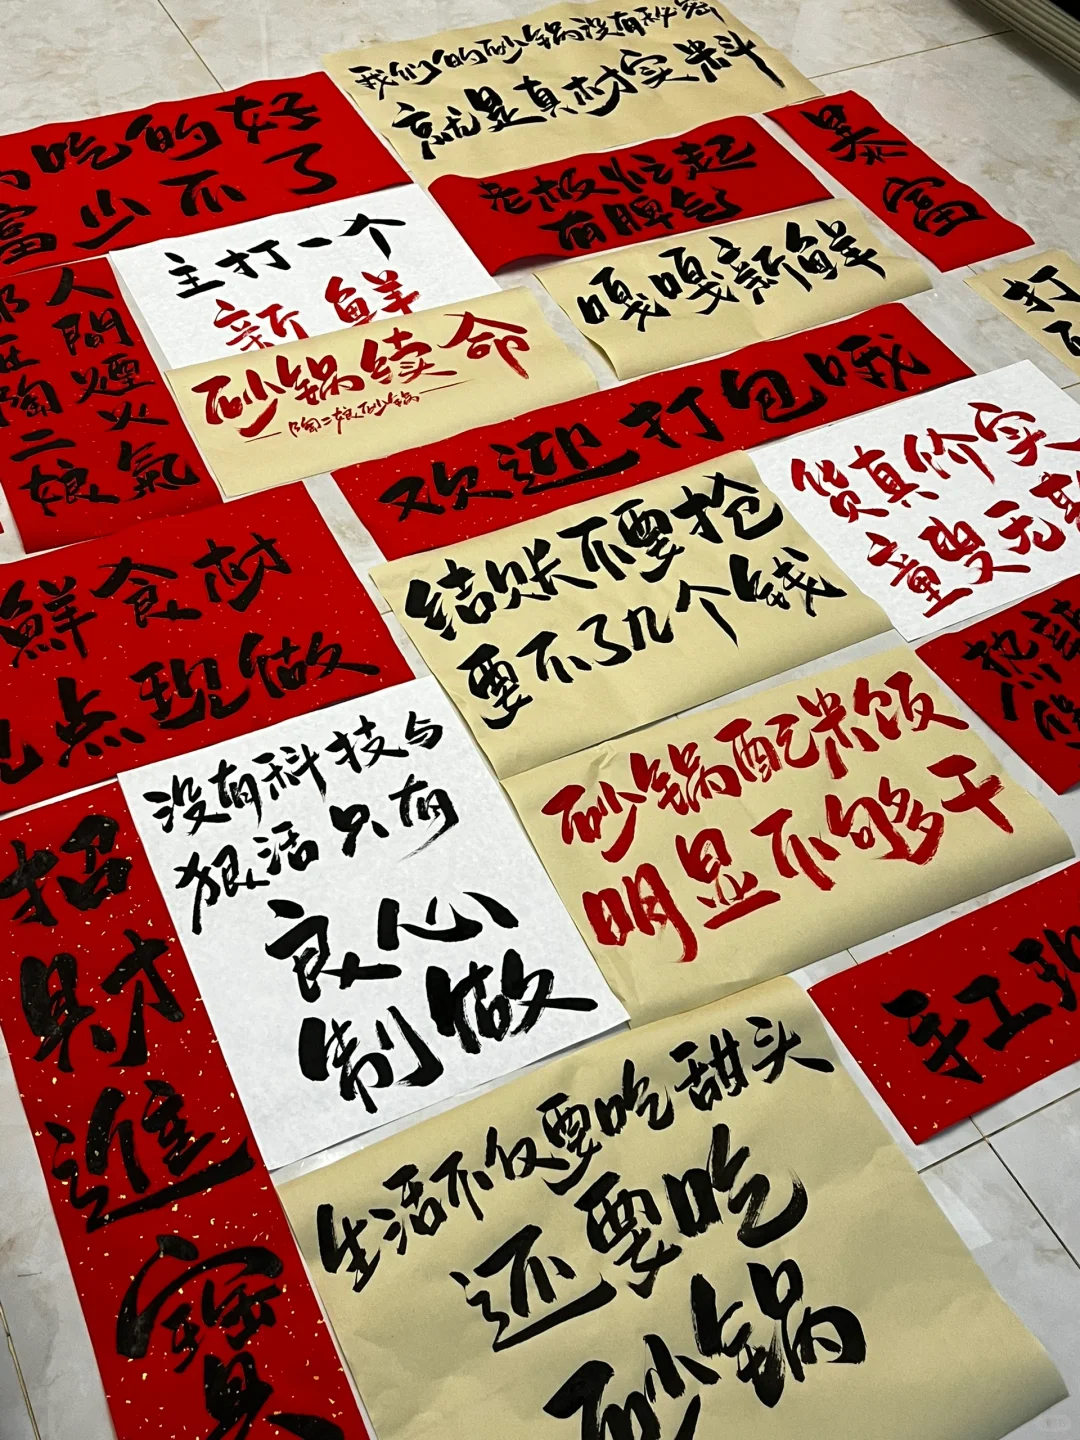 我们的砂锅没有秘密
就是真材实料
吃的好
富少不了
老板忙起
有脾气
暴富
主打一个
新鲜
嘎嘎新鲜
打
人間煙火氣
陶二娘
砂锅续命
陶二娘砂锅
欢迎打包哦
货真价实
童叟无
结账不要抢
要不了几个钱
鲜食材
点现做
没有科技与
狠活只有
良心
制做
砂锅配米饭
明显不够干
招財進寶
手工
生活不仅要吃甜头
还要吃
砂锅